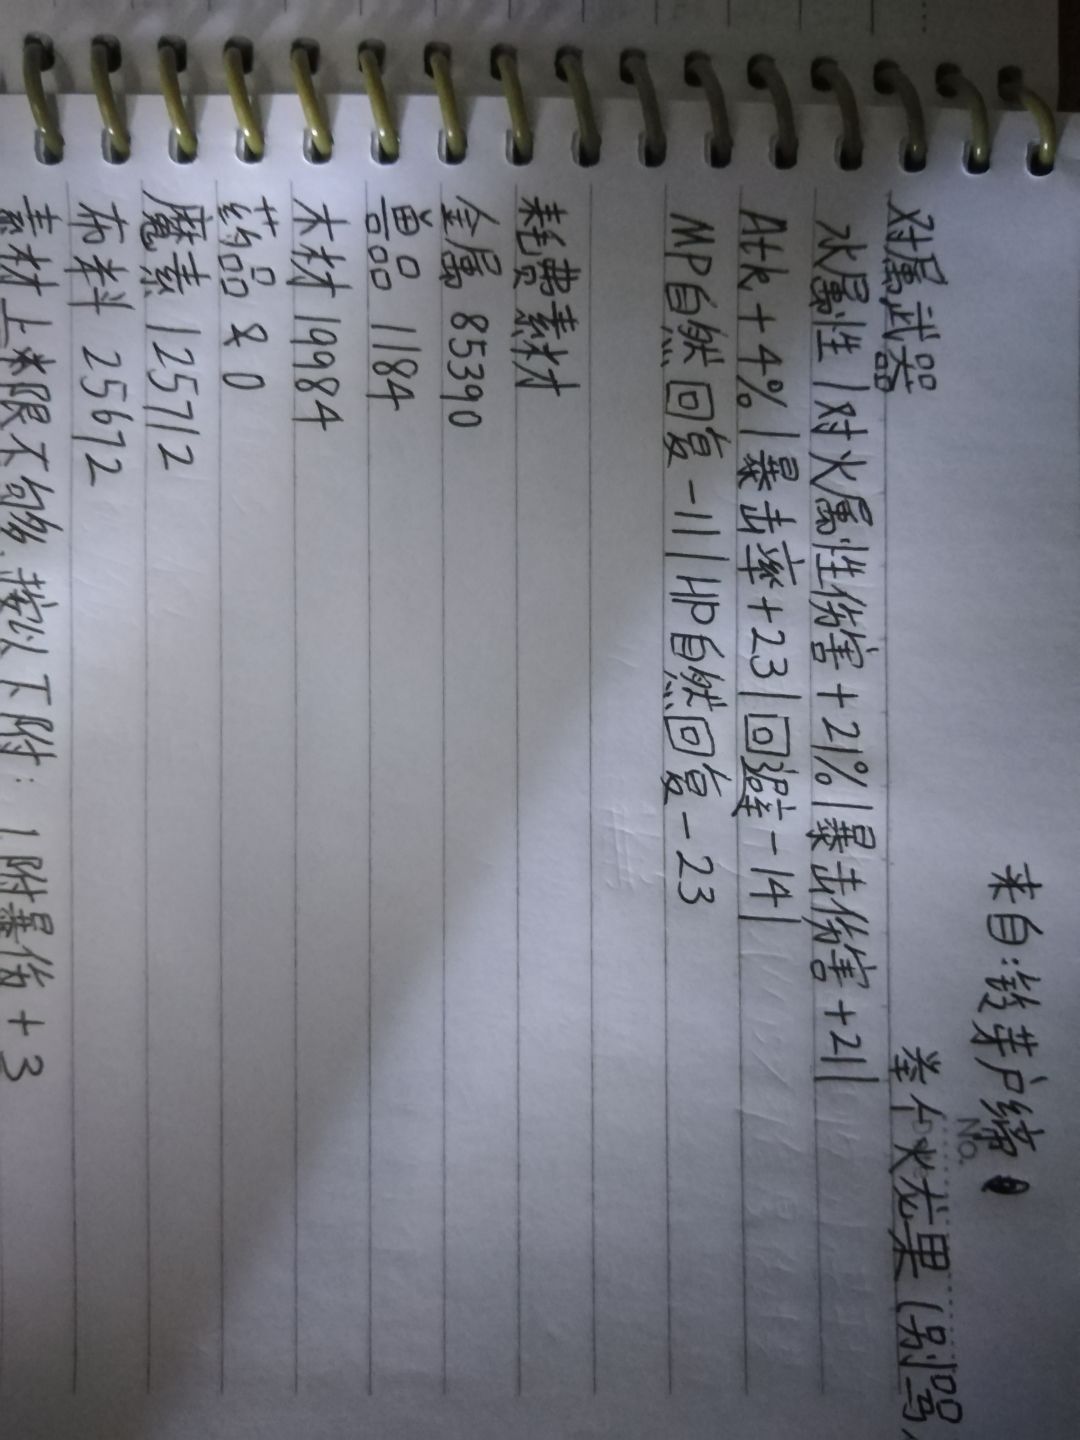 来自:铃芽户缔
No.
拳个火龙果(别骂
对属武器
水属性|对火属性伤害+21%|暴击伤害+21|
Atk+4%|暴击率+23|回避-14|
MP自然回复-11|HP自然回复-23
耗费素材
金属 85390
兽品 1184
木材 19984
药品 80
魔素 125712
布料 25672
素材上限不够,按以下附:1.附暴伤+3